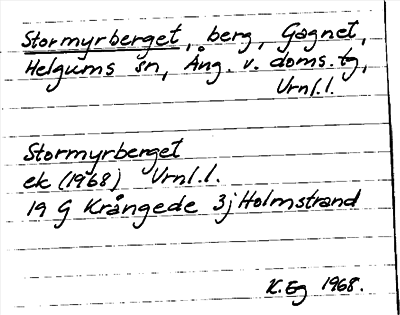 Stormyrberget, berg, Gagnet,
Helgums sn, Ång. v. doms. tg,
Vrnl.l.
Stormyrberget
ek (1968) Vrnl.l.
19 G Krångede 3j Holmstrand
K. Eg 1968.